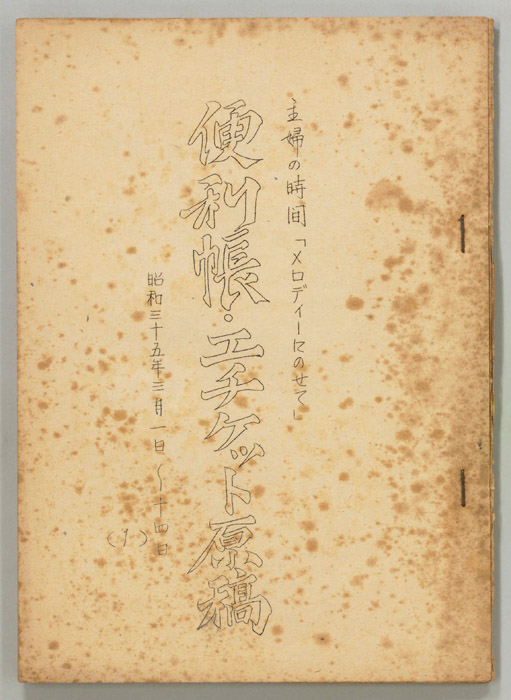 主婦の時間「メロディーにのせて」
便利帳・エチケット原稿
昭和三十五年三月一日〜十四日
(1)